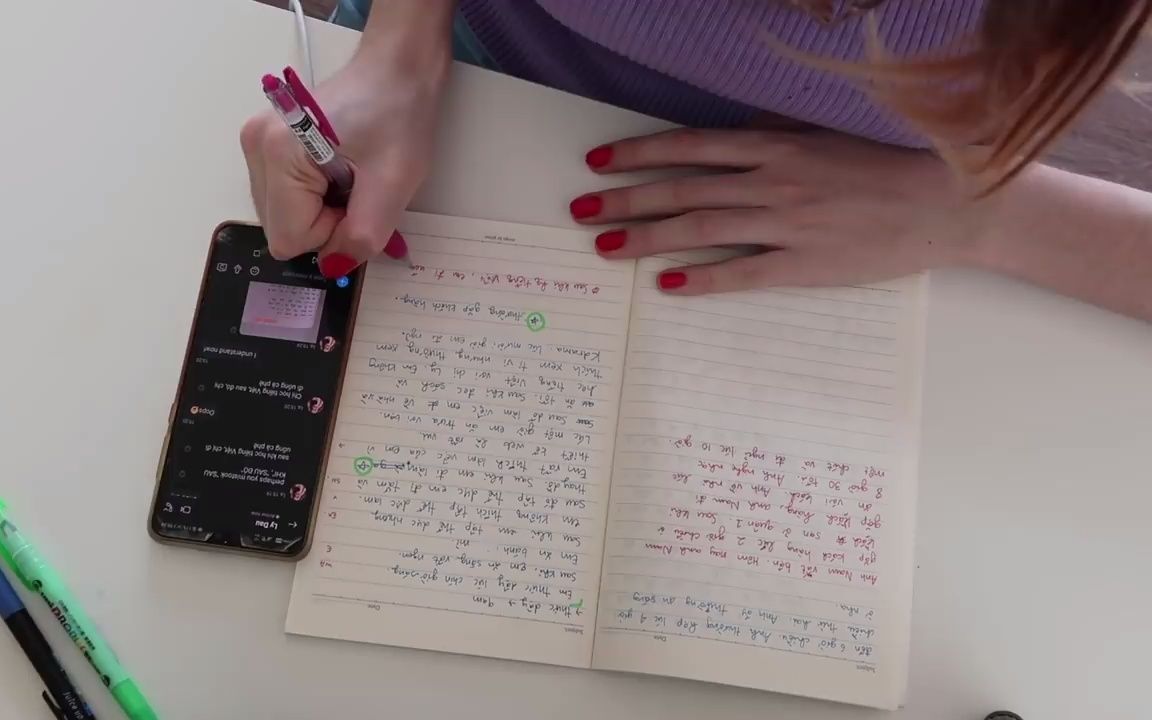 Ly Dau
perhaps you mistook "SAU
KHI", "SAU ĐÓ",
sau khi học tiếng Việt, chị đi
uống cà phê
Oops
Chị học tiếng Việt, sau đó, chị
đi uống cà phê
I understand now!
Subject:
Date:
đến 6 giờ chiều. Anh thường họp lúc 9 giờ
chiều thứ hai. Anh ấy thường ăn sáng
ở nhà.
Anh Nam rất bận. Hôm nay anh Nam
gặp khách hàng lúc 2 giờ chiều ở
sạn ở quận 1. Sau khi
gặp khách hàng, anh Nam đi
ăn với
8 giờ 30 tối. Anh về nhà lúc
Anh nghe nhạc
một chút và đi ngủ lúc 10 giờ.
Subject:
Date:
thức dậy → 9am
Em thức dậy lúc chín giờ sáng.
Sau khi em ăn sáng rất ngon.
Em ăn bánh mì.
Sau khi em tập thể dục nhưng
em không thích tập thể dục lắm.
Sau đó tập thể dục em đi tắm và
thay đồ. Sau khi em đi làm
Em rất thích làm việc của em vì
thiết kế web là rất vui
Lúc một giờ em ăn trưa với bạn.
Sau đó làm việc em về nhà và
ăn tối. Sau khi đọc sách và
học tiếng Việt với chị Ly. Em không
thích xem ti vi nhưng thường xem
Kdrama. Lúc mười giờ em đi ngủ.
thường gặp khách hàng.
Sau khi học tiếng Việt, em đi uố